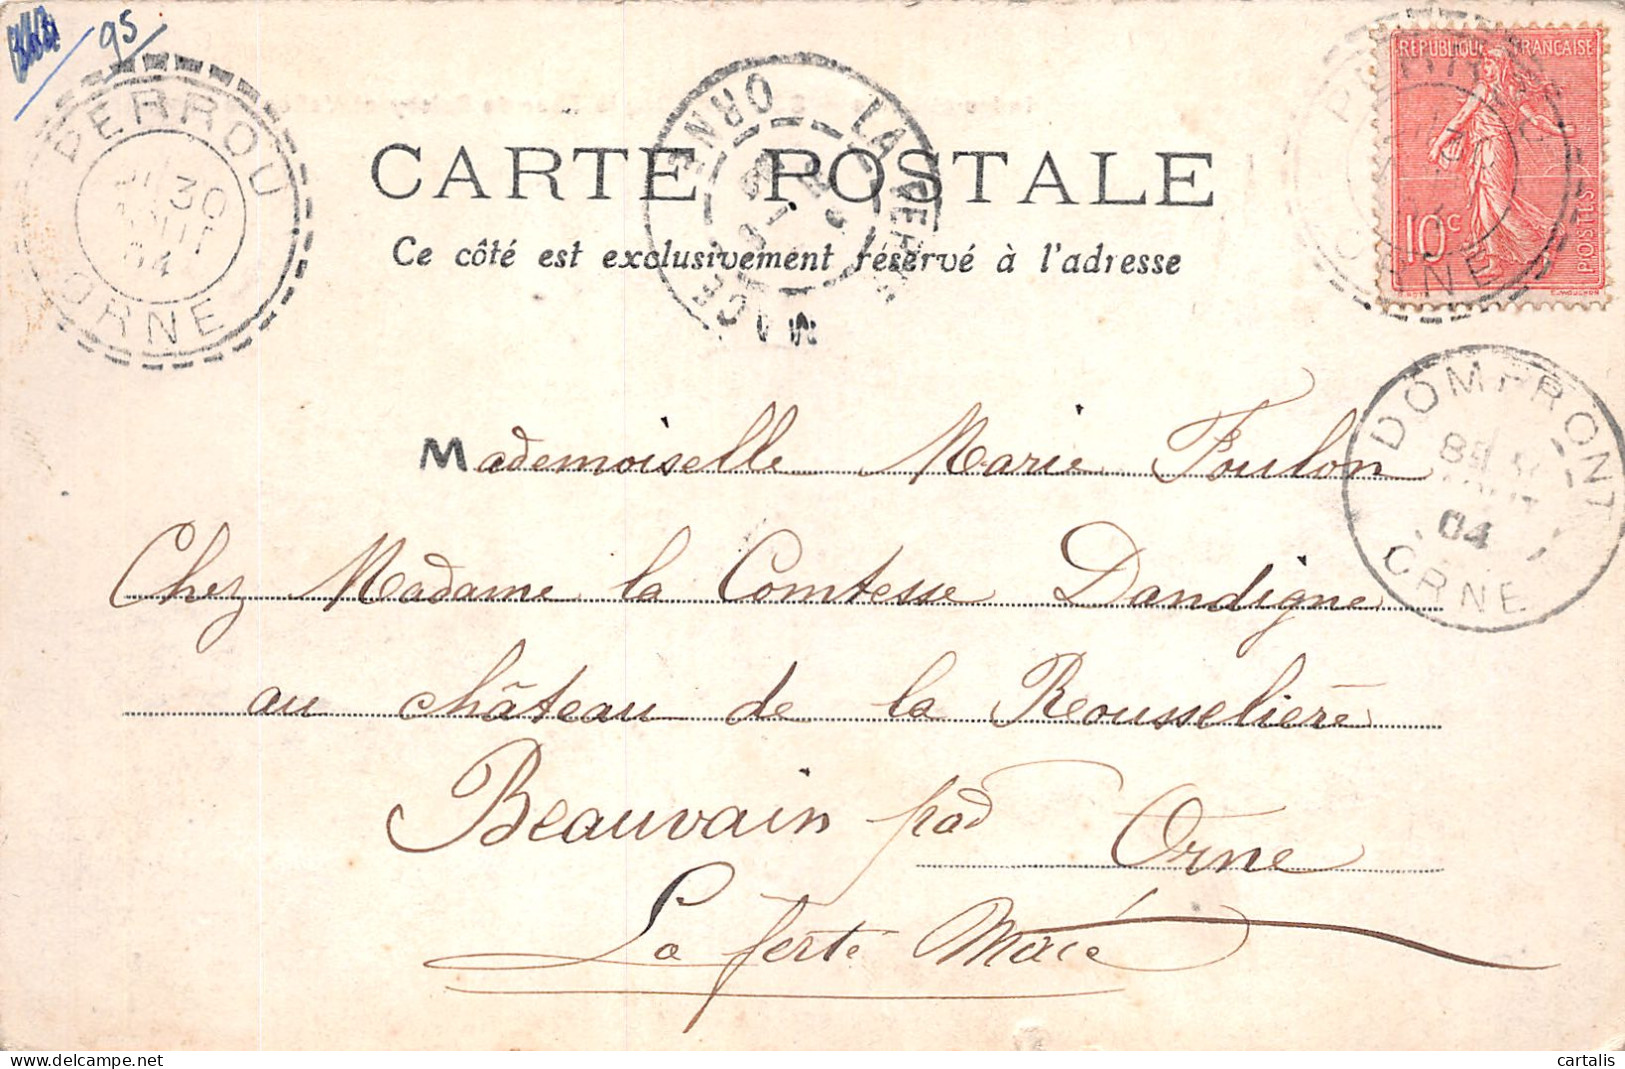 95
PERROU
30
04
ORNE
LA FERTE MACE
ORNE
REPUBLIQUE FRANCAISE
10c
POSTES
ORNE
CARTE POSTALE
Ce côté est exclusivement réservé à l'adresse
DOMFRONT
04
ORNE
Mademoiselle Marie Foulon
Chez Madame la Comtesse Dandigne
au château de la Rousselière
Beauvain par Orne
La ferté Macé
cartalis